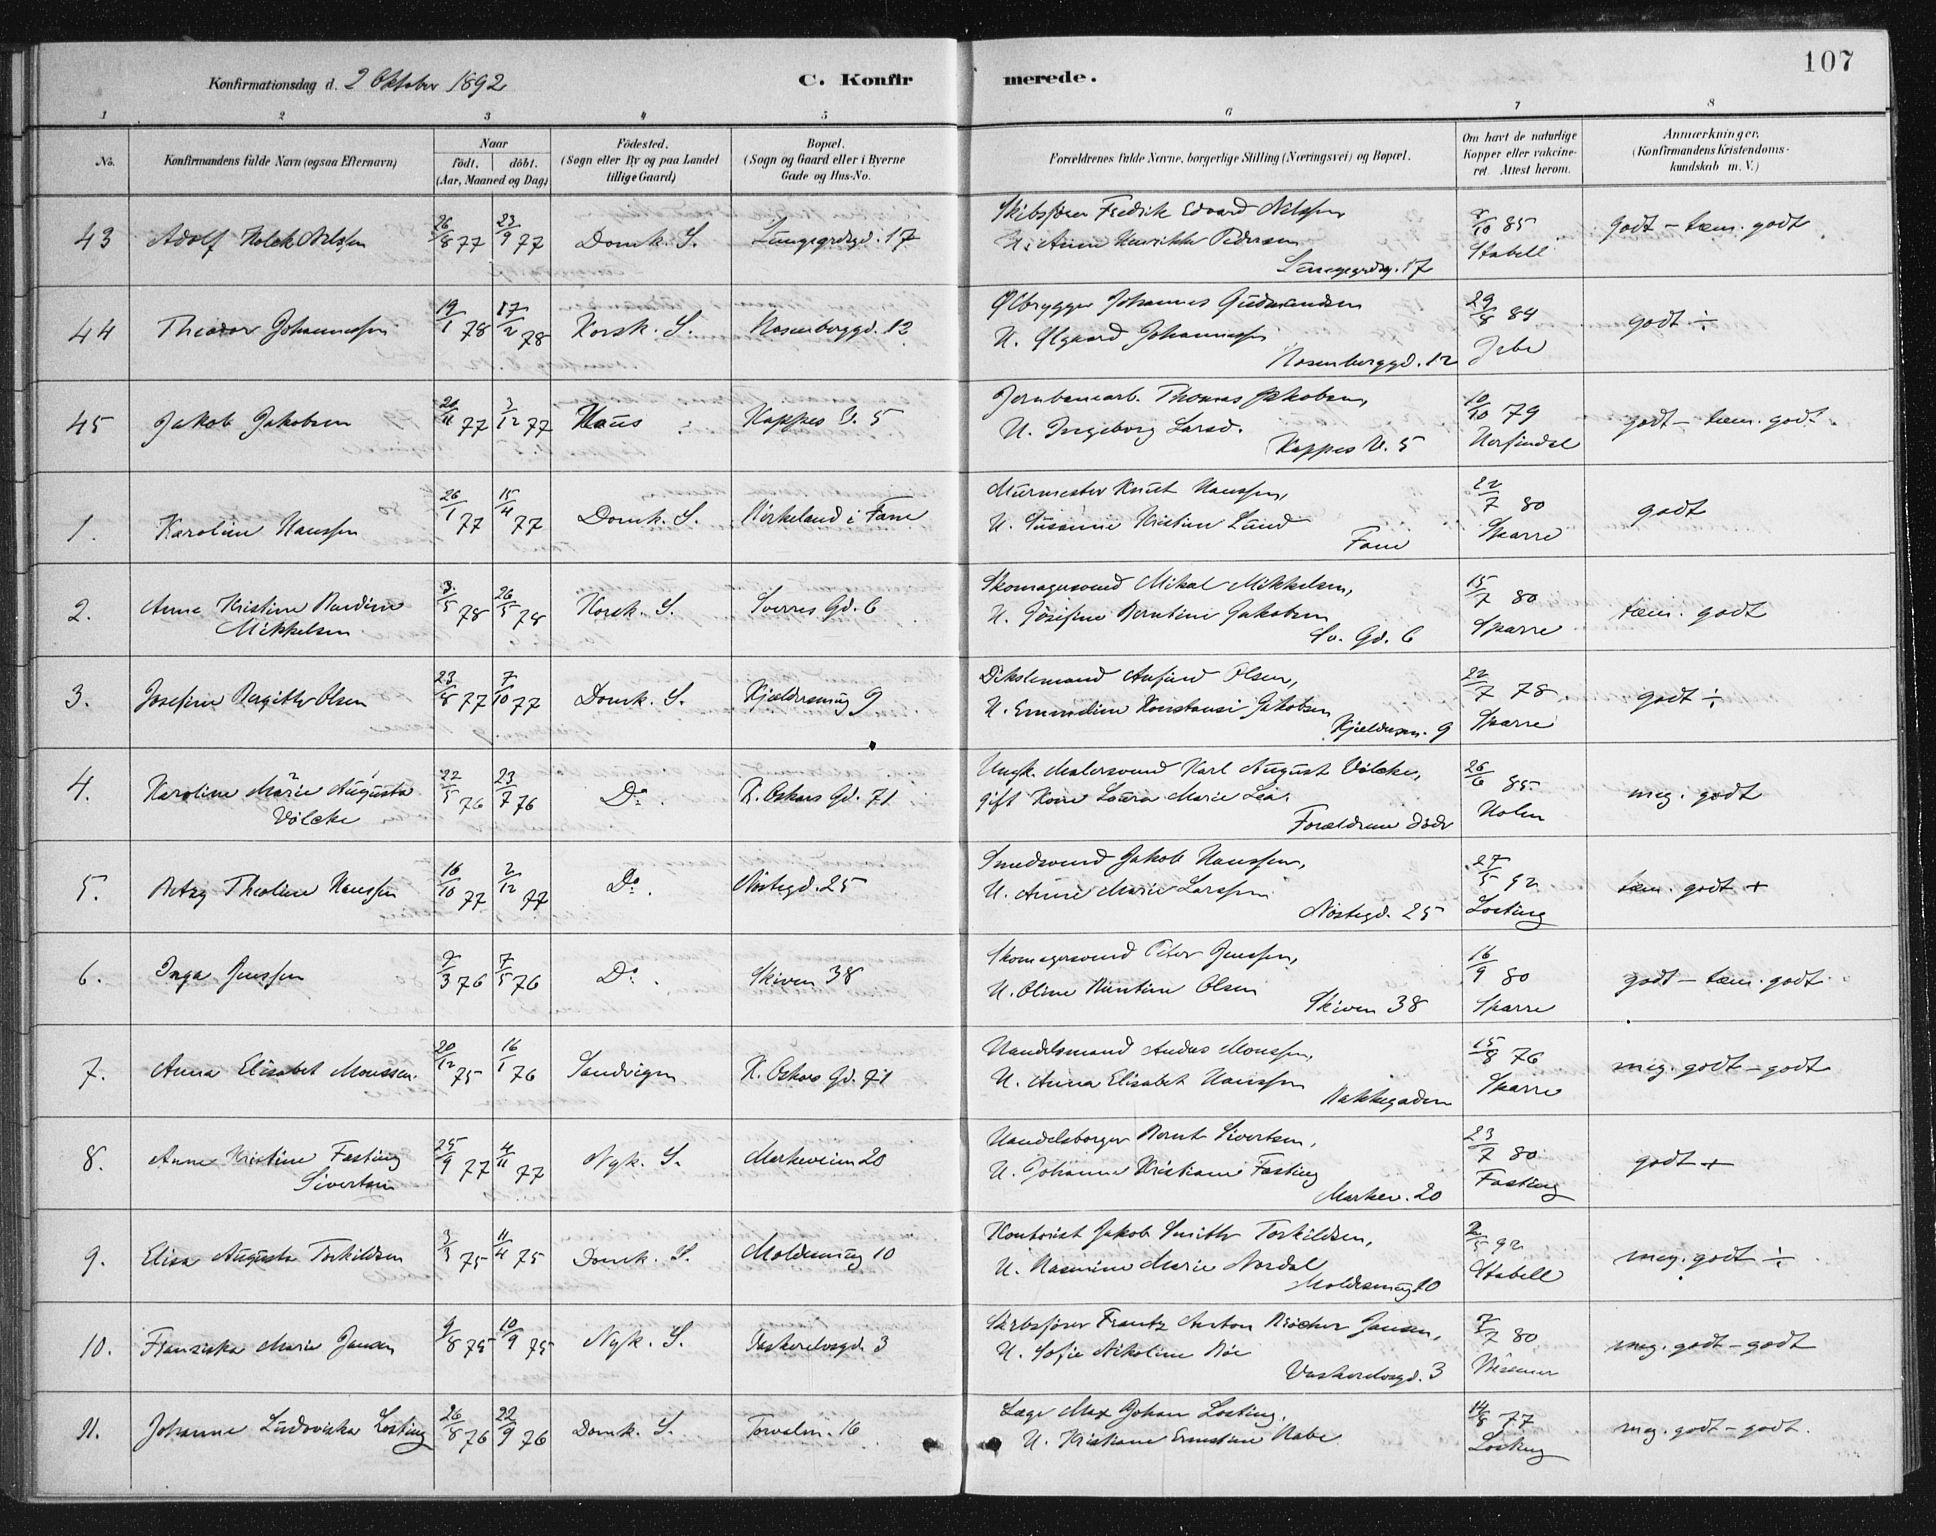 107
Konfirmationsdag d. 2 Oktober 1892
C. Konfirmerede.
1 2 3 4 5 6 7 8
No.
Konfirmandens fulde Navn (ogsaa Efternavn)
Naar
födt. döbt.
(Aar, Maaned og Dag)
Födested.
(Sogn eller By og paa Landet
tillige Gaard)
Bopæl.
(Sogn og Gaard eller i Byerne
Gade og Hus-No.
Forældrenes fulde Navne, borgerlige Stilling (Næringsvei) og Bopæl.
Om havt de naturlige
Kopper eller vakcine-
ret. Attest herom.
Anmærkninger.
(Konfirmandens Kristendoms-
kundskab m. V.)
43 Adolf Holck Nilssen 26/8 77 23/9 77 Domk. S. Lungegrdsgd. 17
Skibsfører Fredrik Edvard Nilssen
H. Anna Henrikke Pedersen
Lungegrdsg. 17
/10 85
Stabell
godt - tem. godt
44 Theodor Johannessen 19/1 78 17/2 78 Korsk. S. Rosenberggd. 12
Ølbrygger Johannes Gudmundsen
H. Ølgaard Johannessen
Rosenberggd. 12
29/8 84
Jebe
godt ÷
45 Jakob Jakobsen 20/11 77 2/12 77 Haus Kappes V. 5
Jernbanearb. Thomas Jakobsen,
H. Ingeborg Larsd.
Kappes V. 5
10/10 79
Norfindal
godt - tem. godt
1. Karoline Hanssen 26/1 77 15/4 77 Domk. S. Birkeland i Fane
Murmester Knut Hanssen,
H. Susanne Kristine Lund
Fane
22/7 80
Sparre
godt
2. Anna Kristine Bardine
Mikkelsen 3/5 78 26/5 78 Korsk. S. Sverres Gd. 6
Skomagersvend Mikal Mikkelsen,
H. Josefine Berntine Jakobsen
Sv. Gd. 6
15/7 80
Sparre
tem. godt
3. Josefine Bergitte Olsen 23/8 77 7/10 77 Domk. S. Kjeldersmug 9
Dikslemand Anfind Olsen,
H. Emmeline Konstansi Jakobsen
Kjeldersm. 9
22/7 78
Sparre
godt ÷
4. Karoline Marie Augusta
Völcke 22/5 76 23/7 76 Do. K. Oskars Gd. 71
Ungk. Malersvend Karl August Völcke,
gift Kone Laura Marie Lea.
Forældrene døde
26/6 85
Holm
meg. godt
5. Betzy Theoline Hanssen 16/10 77 2/12 77 Do. Nöstegd. 25
Smedsvend Jakob Hanssen,
H. Anne Marie Larssen
Nöstegd. 25
27/5 92
Losting
tem. godt +
6. Inga Jenssen 7/3 76 7/5 76 Do. Skiven 38
Skomagersvend Peter Jenssen,
H. Oline Bentine Olsen
Skiven 38
16/9 80
Sparre
godt - tem. godt
7. Anna Elisabet Monssen. 20/12 75 16/1 76 Sandvigen K. Oskars Gd. 71
Handelsmand Anders Monssen,
H. Anna Elisabet Hanssen
Bakkegaden
15/8 76
Sparre
meg. godt - godt
8. Anna Kristine Fasting
Sivertsen 25/9 77 4/11 77 Nyk. S. Markeveien 20
Handelsborger Bernt Sivertsen,
H. Johanne Kristiane Fasting
Markev. 20
23/7 80
Fasting
godt +
9. Elisa Augusta Torkildsen 3/3 75 11/4 75 Domk. S. Moldesmug 10
Kontorist Jakob Smitth Torkildsen,
H. Rasmine Marie Nordal
Moldesmug 10
2/5 92
Stabell
meg. godt ÷
10. Franziska Marie Jansen 9/8 75 10/9 75 Nyk. S. Vaskerelvsgd. 3
Skibsfører Frantz Anton Bröcher Jansen,
H. Sofie Nikoline Böe
Vaskerelvsgd. 3
7/7 80
Wiesener
meg. godt - godt
11. Johanne Ludovicka Losting 26/8 76 22/9 76 Domk. S. Torvalm. 16
Læge Max Johan Losting,
H. Kristiane Ernestine Rabe
14/8 77
Losting
meg. godt - godt.